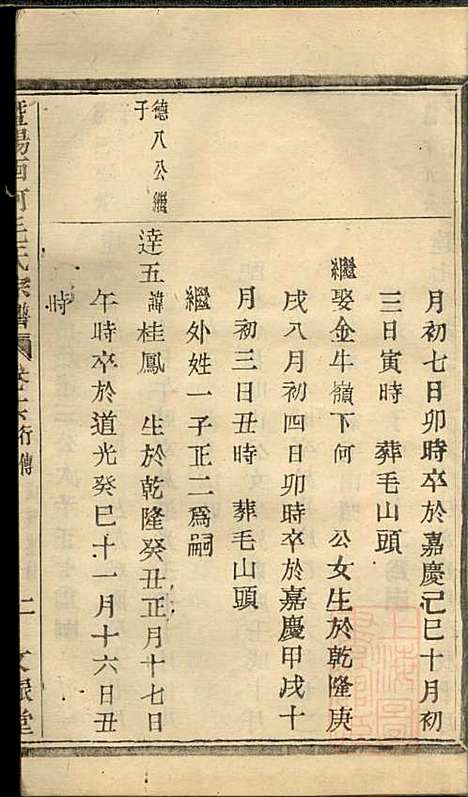 月初七日卯時卒於嘉慶己巳十月初
三日寅時　葬毛山頭
繼娶金牛嶺下何　公女生於乾隆庚
戌八月初四日卯時卒於嘉慶甲戌十
月初三日丑時　葬毛山頭
繼外姓一子正二爲嗣
德八公繼子
達五諱桂鳳　生於乾隆癸丑正月十七日
午時卒於道光癸巳十一月十六日丑
時
暨陽西河毛氏宗譜